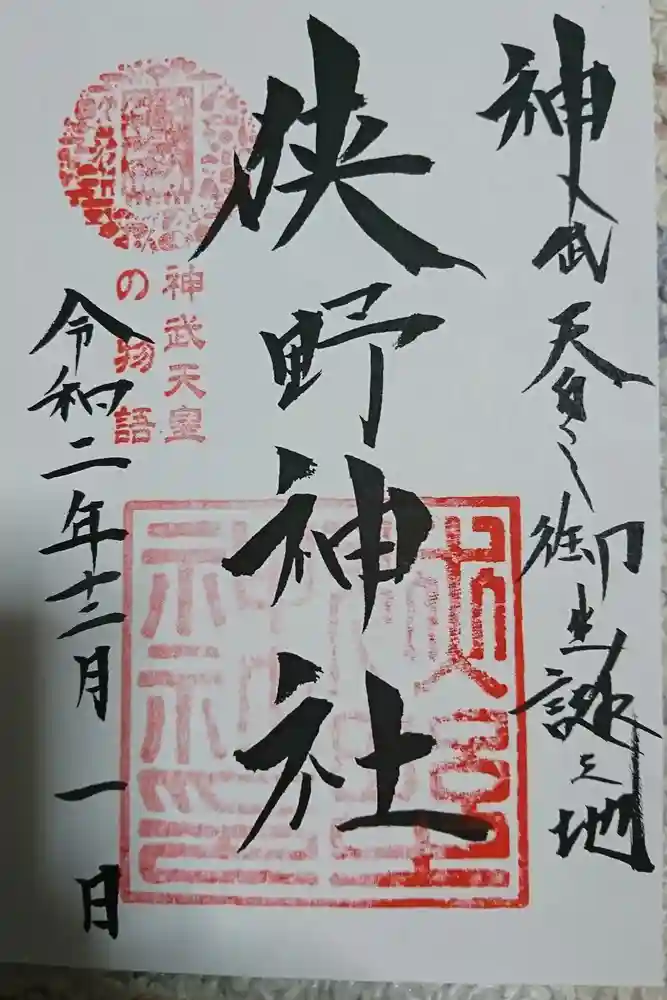 神武天皇之御生誕之地
狭野神社
神武天皇
の物語
令和二年十二月一日